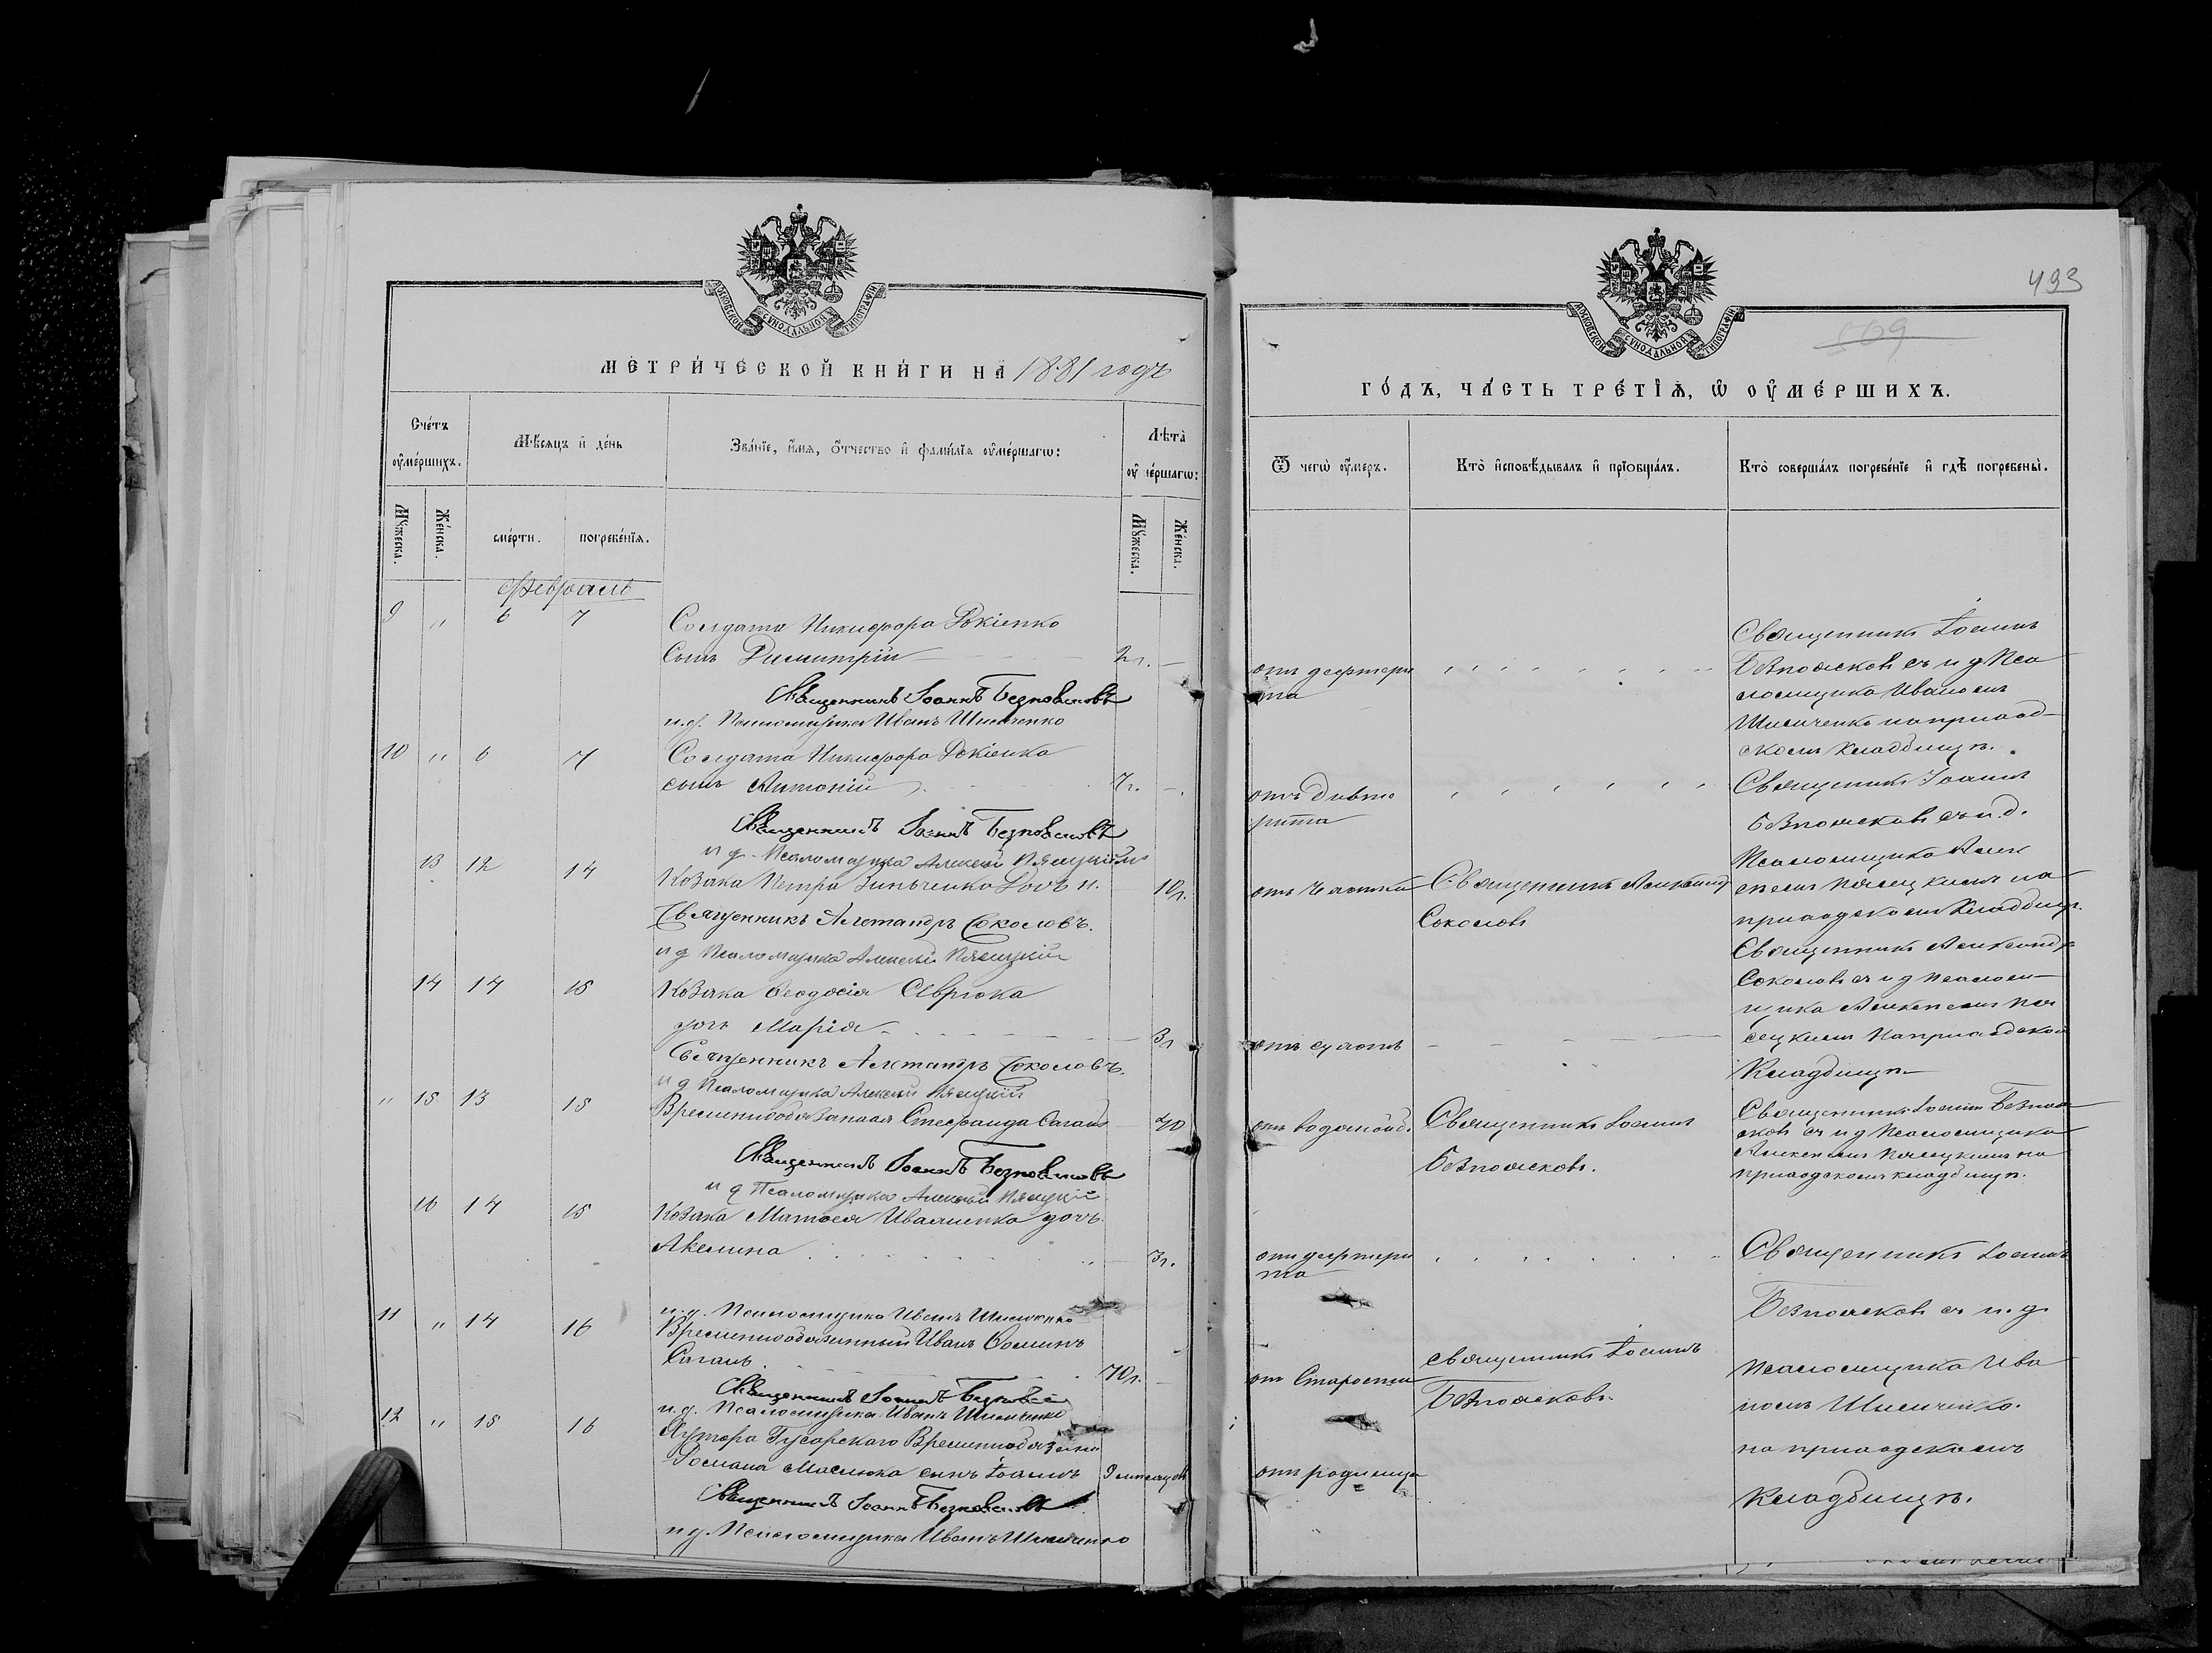 493
МОСКОВСКОЙ СѴНОДАЛЬНОЙ ТИПОГРАФІИ
МЕТРИЧЕСКОЙ КНИГИ НА 1881 годъ
Счетъ оумершихъ.
Мѣсяцъ и день
Званіе, имя, отчество и фамилія оумершагѡ:
Лѣта оумершагѡ:
Мꙋжеска.
Женска.
смерти.
погребенія.
Мꙋжеска.
Женска.
Февраль
9 " 6 7 Солдата Никифора
Сынъ Димитрій 2 г. —
Священникъ Іоаннъ Безпоясковъ
и.д. Псаломщика Иванъ Шимченко
10 " 6 7 Солдата Никифора
сынъ Антоній 7 г. —
Священникъ Іоаннъ Безпоясковъ
и д. Псаломщика Алексѣй Пясецкій
13 12 14 Козака Петра Зинченко дочь 10 г.
Священникъ Александръ Соколовъ.
и д Псаломщика Алексѣй Пясецкій
14 14 15 Козака Ѳеодосія Севрюка
дочь Марія 3 г
Священникъ Александръ Соколовъ.
и д Псаломщика Алексѣй Пясецкій
" 15 13 15 Временнообязанная Стефанида Саганъ 40
Священникъ Іоаннъ Безпоясковъ
и д Псаломщика Алексѣй Пясецкій
16 14 15 Козака Матѳея Иващенка дочь
Акелина 3 г.
и.д. Псаломщика Иванъ Шимченко
11 " 14 16 Временнообязанный Иванъ Ѳоминъ
Саганъ 70 г. —
Священникъ Іоаннъ Безпоясковъ
и.д. Псаломщика Иванъ Шимченко
12 " 15 16 Хутора Гусарскаго
Романа Маслюка сынъ Іоаннъ 9 мѣсяцов
Священникъ Іоаннъ Безпоясковъ
и д. Псаломщика Иванъ Шимченко
МОСКОВСКОЙ СѴНОДАЛЬНОЙ ТИПОГРАФІИ
ГОДЪ, ЧАСТЬ ТРЕТІЯ, Ѡ ОУМЕРШИХЪ.
Ѿ чегѡ оумеръ.
Кто исповѣдывалъ и пріобщалъ.
Кто совершалъ погребеніе и гдѣ погребены.
отъ дефтери
та
Священникъ Іоаннъ
Безпоясковъ съ и д Пса
ломщика Иваномъ
Шимченко на приход
скомъ кладбищѣ.
отъ дивте
рита
Священникъ Іоаннъ
Безпоясковъ съ и.д.
Псаломщика Алек
сѣемъ Пясецкимъ на
приходскомъ кладбищѣ.
отъ
Священникъ Александ
Соколовъ
Священникъ Александр
Соколовъ съ и д Псалом
щика Алексѣемъ Пя
сецкимъ на приходском
Кладбищѣ
отъ
отъ
Священникъ Іоаннъ
Безпоясковъ.
Священникъ Іоаннъ Безпоя
сковъ съ и д Псаломщика
Алексѣемъ Пясецкимъ на
приходскомъ кладбищѣ.
отъ дефтери
та
Священникъ Іоаннъ
Безпоясковъ съ и.д.
Псаломщика Ива
номъ Шимченко.
на приходскомъ
Кладбищѣ.
от Старости
священникъ Іоаннъ
Безпоясковъ.
отъ родимца